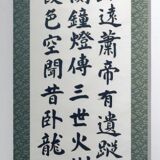 遠蕭帝有遺蹤
鐘燈傳三世火
色空聞昔卧龍